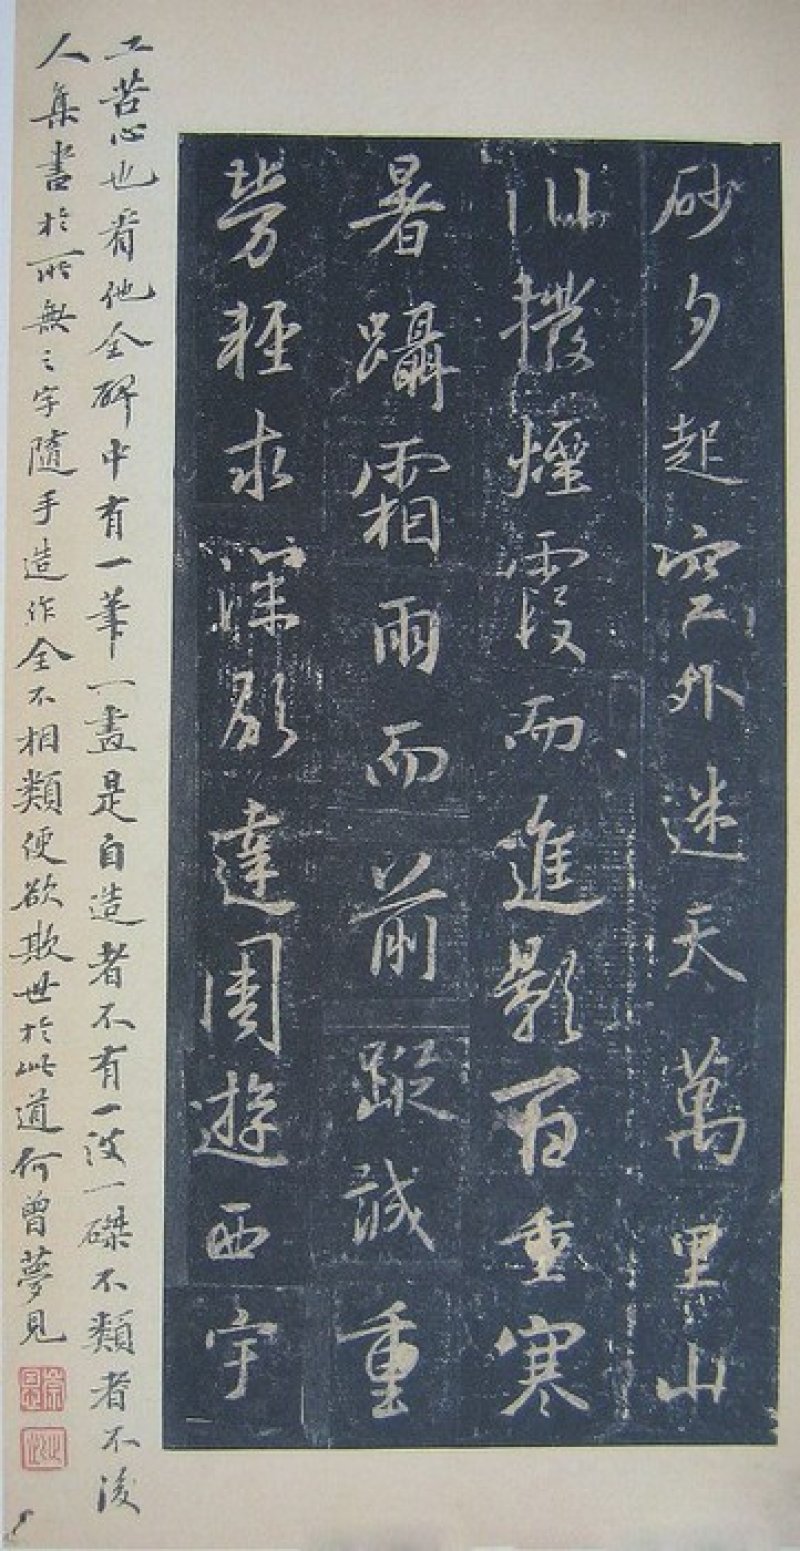 砂夕起空外迷天萬里山
川撥煙霞而進影百重寒
暑躡霜雨而前蹤誠重
勞輕求深願達周遊西宇
工苦心也看他全碑中有一筆一畫是自造者不有一波一磔不類者不後
人集書於所無之字隨手造作全不相類便欲欺世於此道何曾夢見